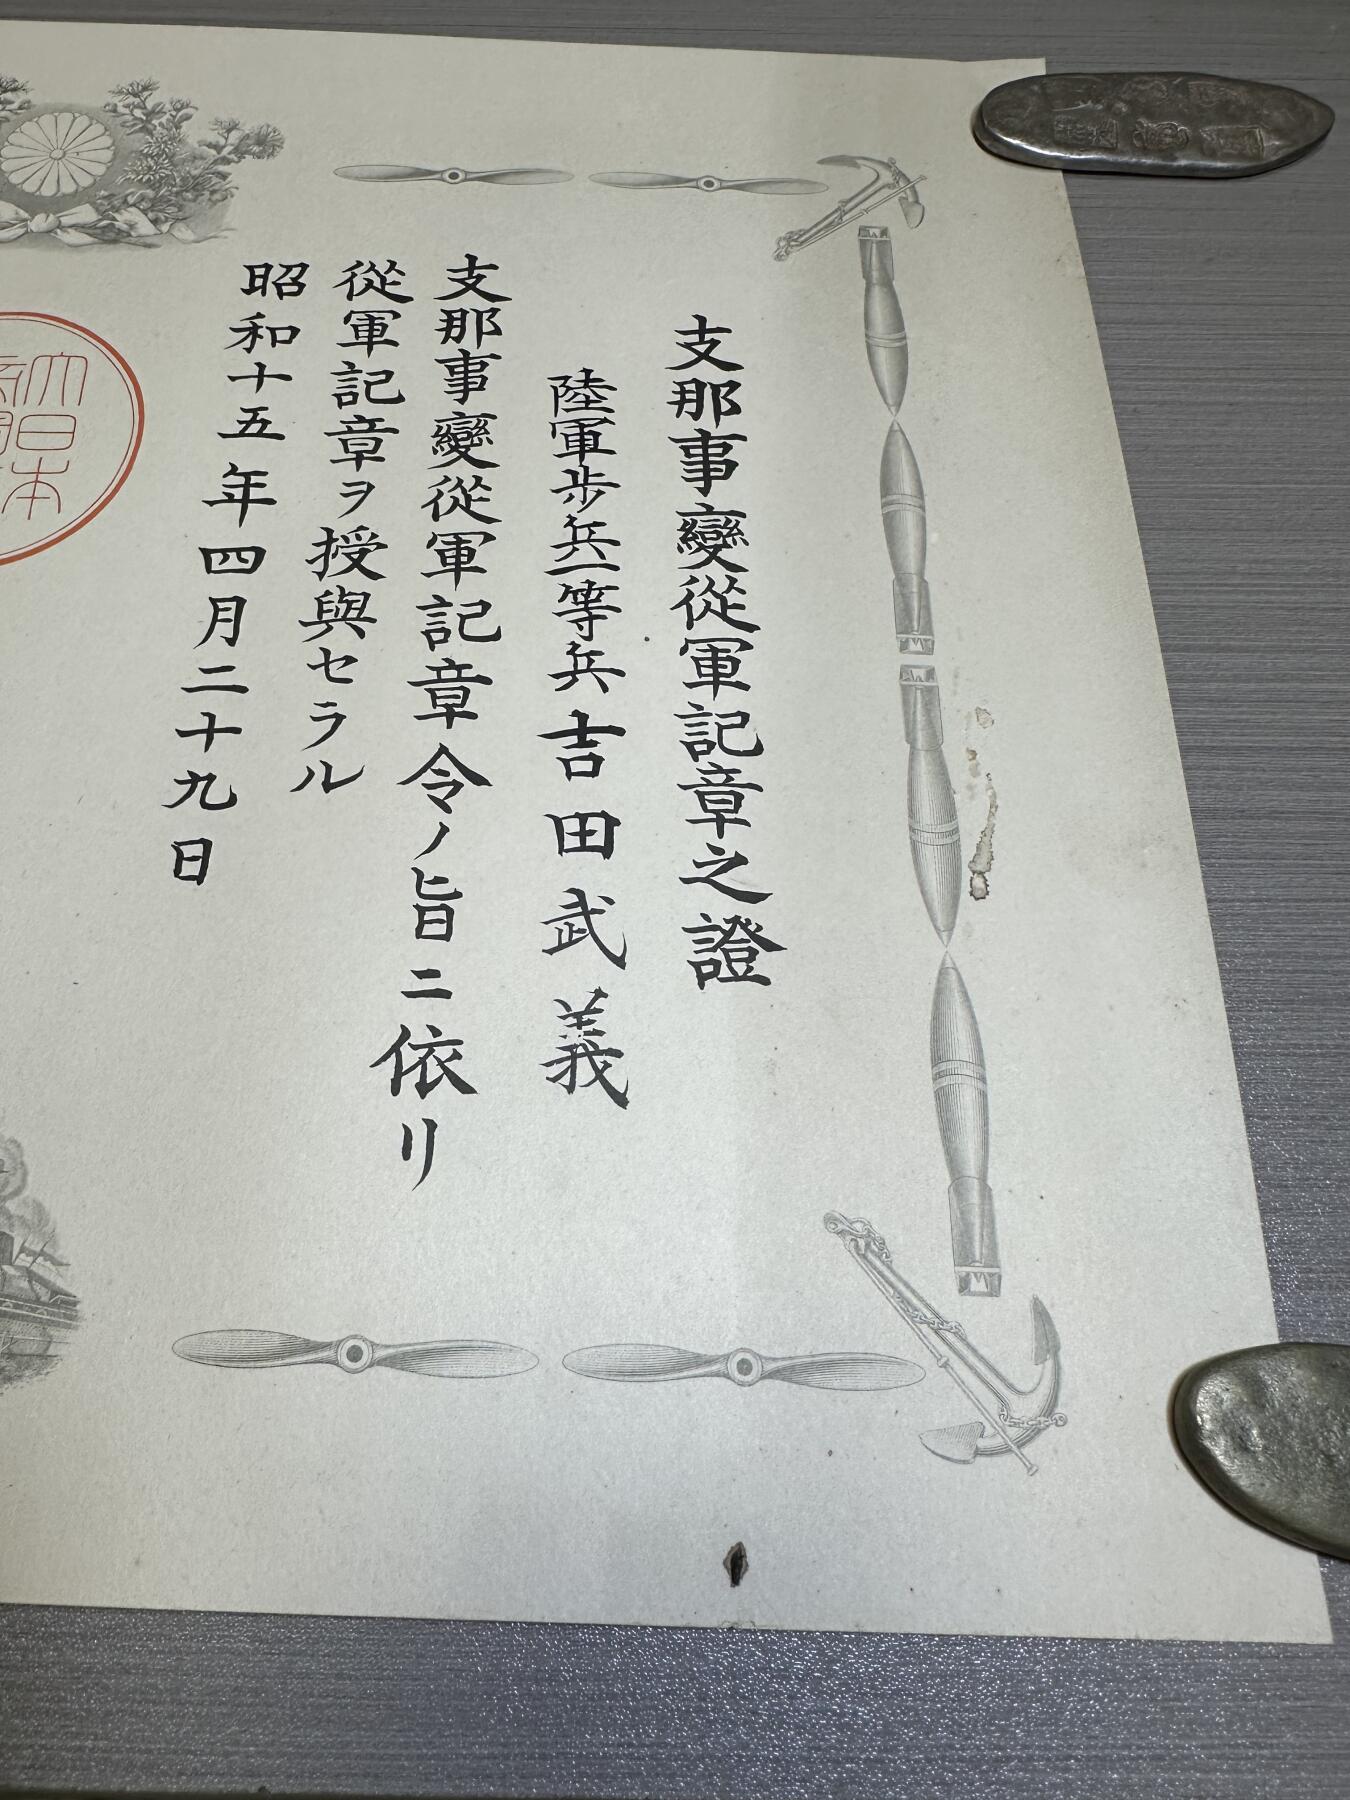 支那事變從軍記章之證
陸軍步兵一等兵吉田武義
支那事變從軍記章令ノ旨ニ依リ
從軍記章ヲ授與セラル
昭和十五年四月二十九日
大日本